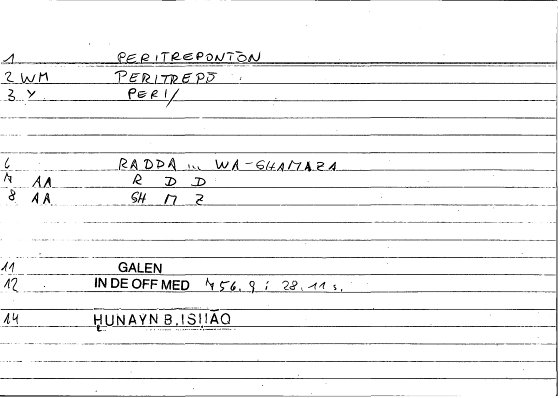 1 PERITREPONTŌN
2 WM PERITREPŌ
3 Y PERI/
6 RADDA ... WA-SHAMAZA
7 AA R D D
8 AA SH M Z
11 GALEN
12 IN DE OFF MED 756.9 ; 28.11 s.
14 ḤUNAYN B.ISḤĀQ